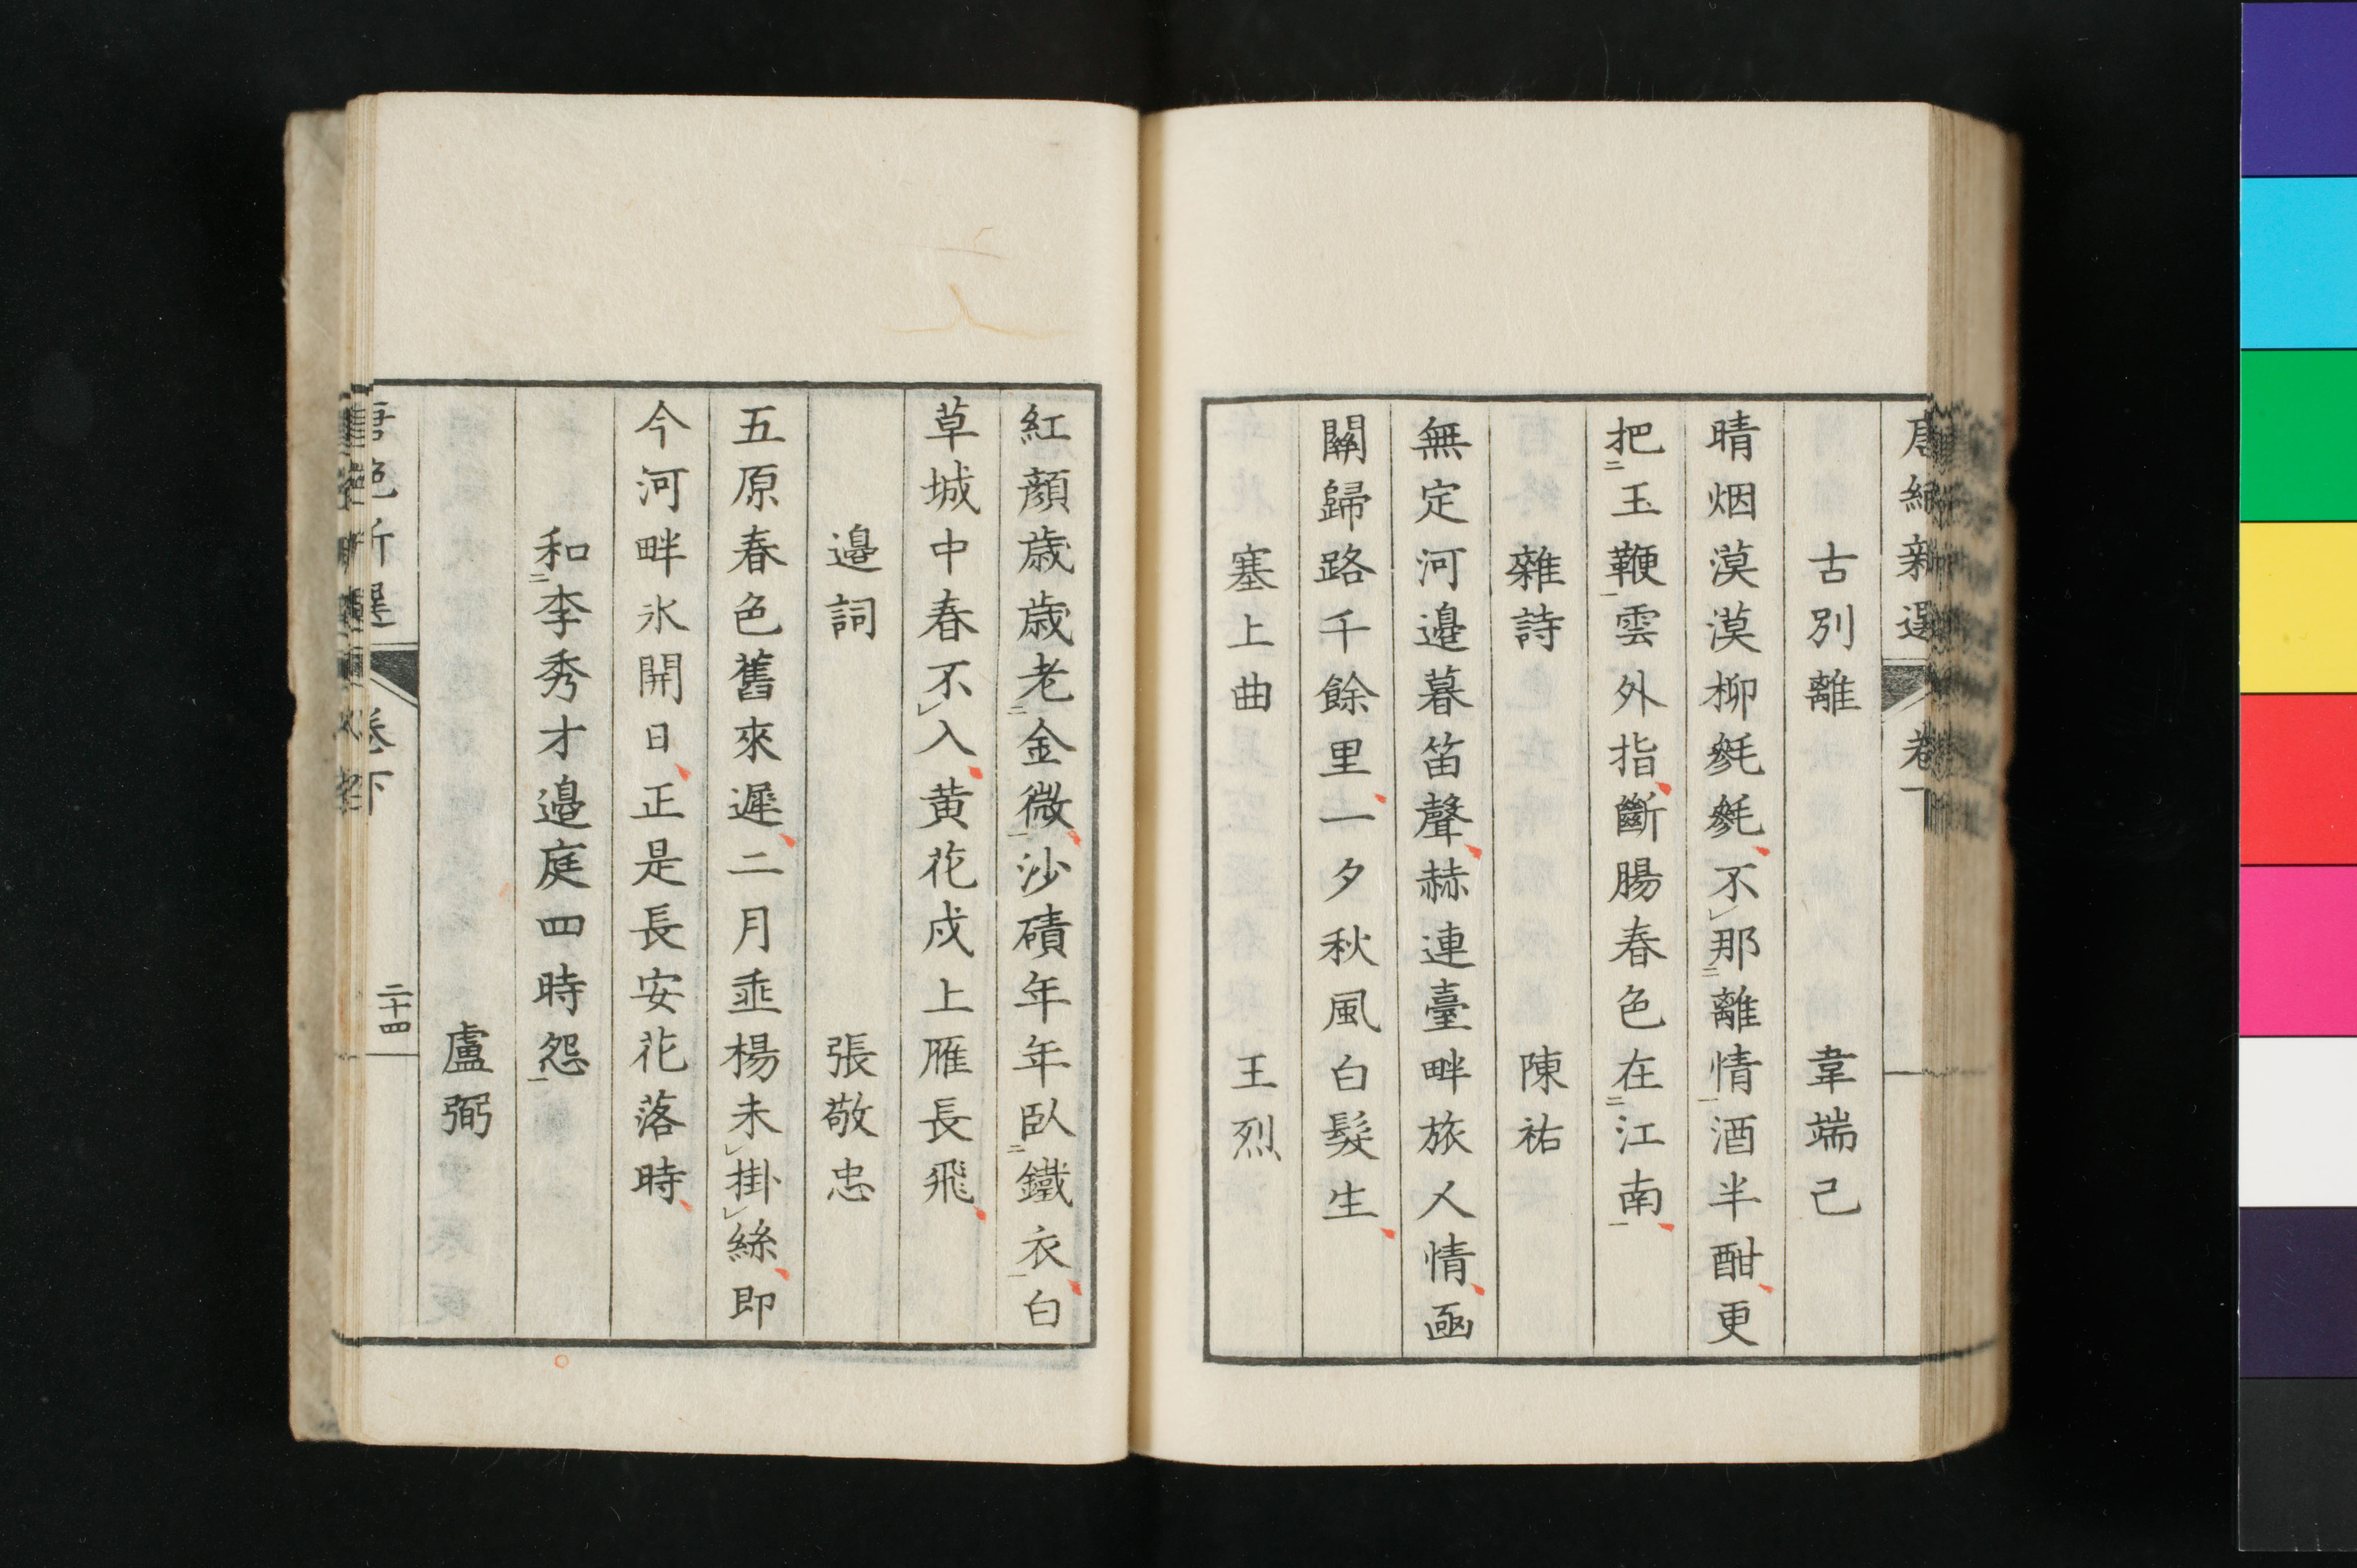 古別離　韋端己
晴烟漠漠柳毿毿不那離情酒半酣更
把玉鞭雲外指斷腸春色在江南
雜詩　陳祐
無定河邊暮笛聲赫連臺畔旅人情凾
關歸路千餘里一夕秋風白髮生
塞上曲　王烈
紅顏歲歲老金微沙磧年年臥鐵衣白
草城中春不入黃花戍上雁長飛
邊詞　張敬忠
五原春色舊來遲二月垂楊未掛絲即
今河畔氷開日正是長安花落時
和李秀才邊庭四時怨
盧弼
卷下
二十四